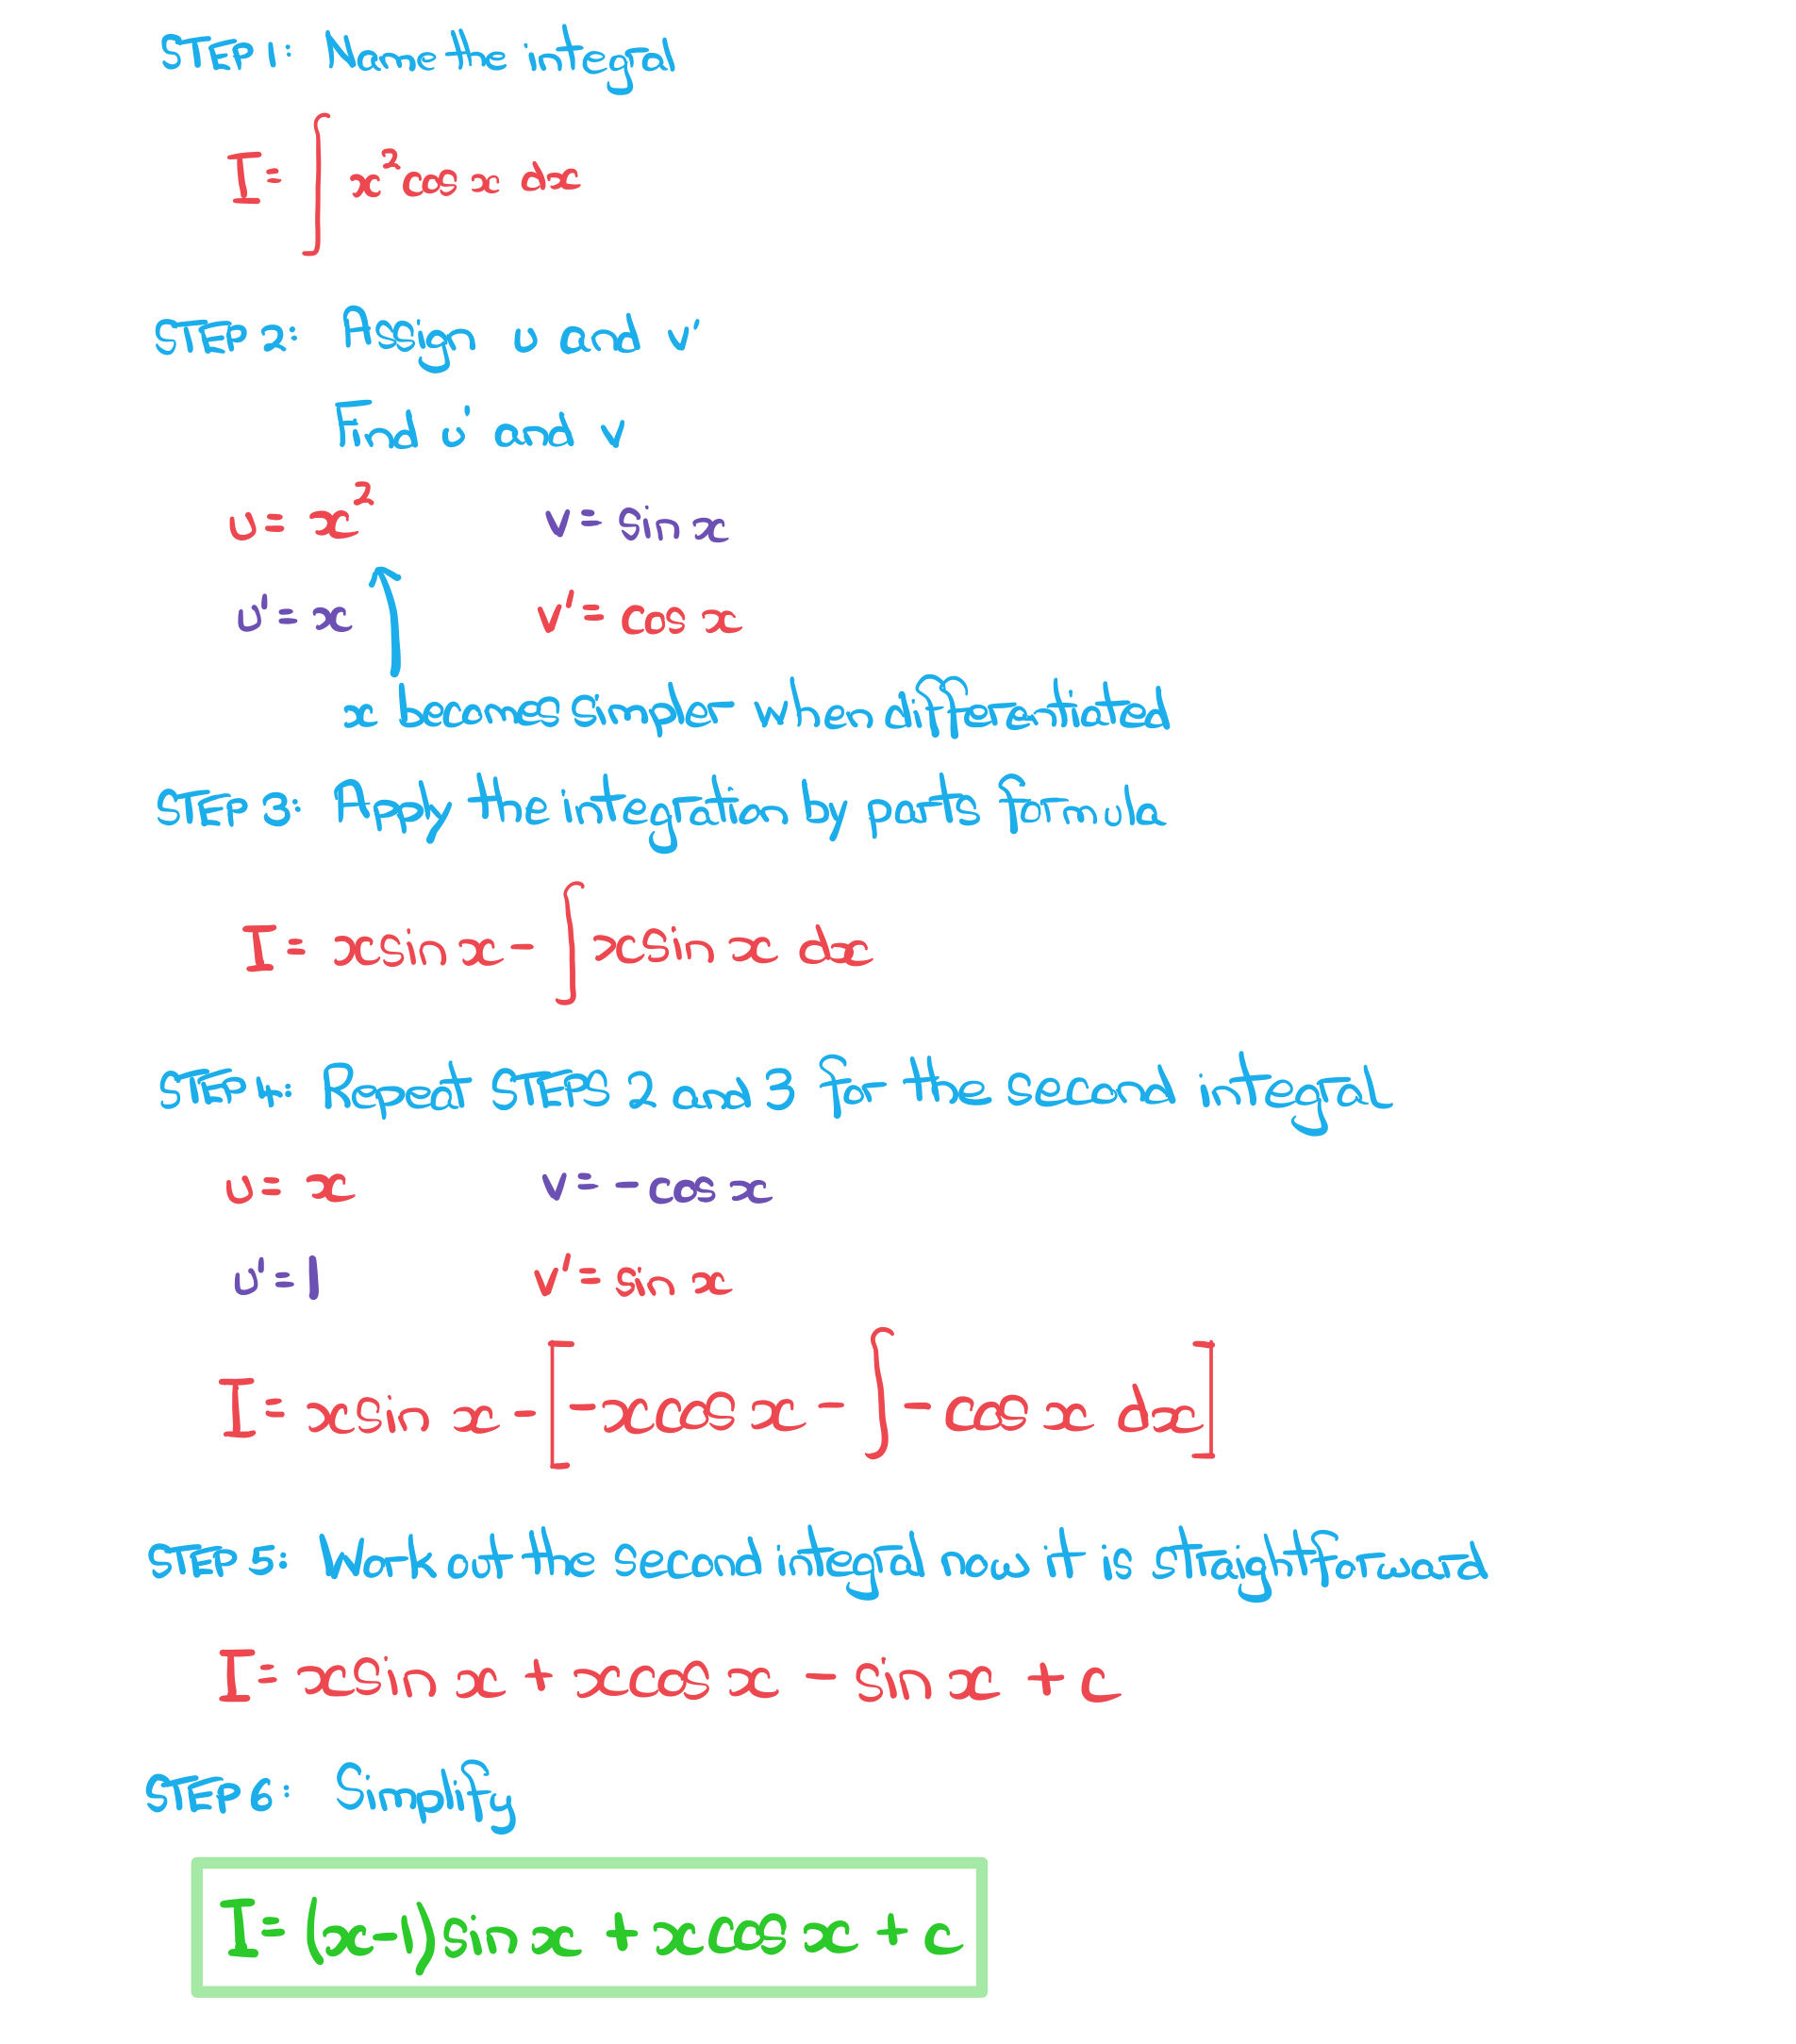 STEP 1: Name the integral
I = ∫ x² cos x dx
STEP 2: Assign u and v'
Find u' and v
u = x² v = sin x
u' = x v' = cos x
x becomes simpler when differentiated
STEP 3: Apply the integration by parts formula
I = x sin x - ∫ x sin x dx
STEP 4: Repeat STEPS 2 and 3 for the second integral
u = x v = - cos x
u' = 1 v' = sin x
I = x sin x - [- x cos x - ∫ - cos x dx]
STEP 5: Work out the second integral now it is straightforward
I = x sin x + x cos x - sin x + c
STEP 6: Simplify
I = (x-1) sin x + x cos x + c